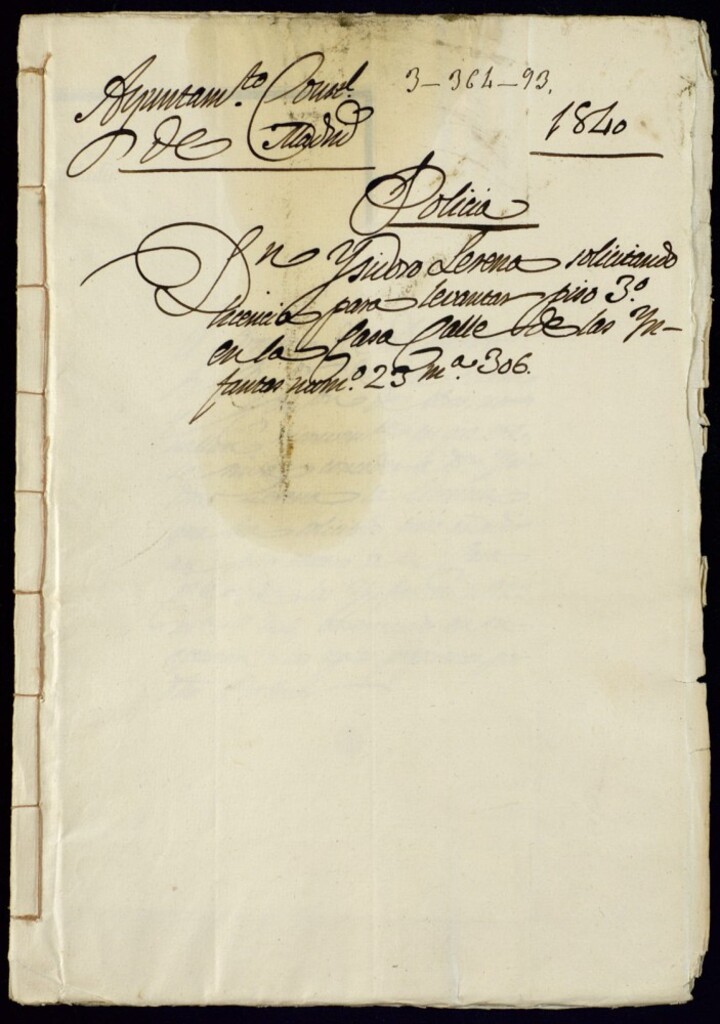 Ayuntam.to Const.l 3-364-93.
de Madrid
1840
Policia
Dn Ysidro Lerena solicitando
licencia para levantar piso 3.o
en la Casa Calle de las Yn-
fantas num.o 23 m.a 306.